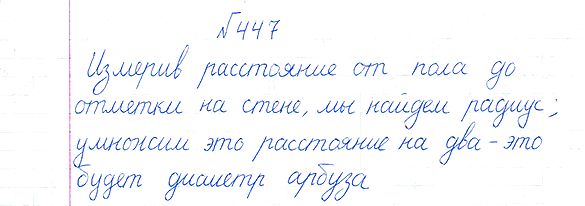 №447
Измерив расстояние от пола до
отметки на стене, мы найдем радиус;
умножим это расстояние на два - это
будет диаметр арбуза